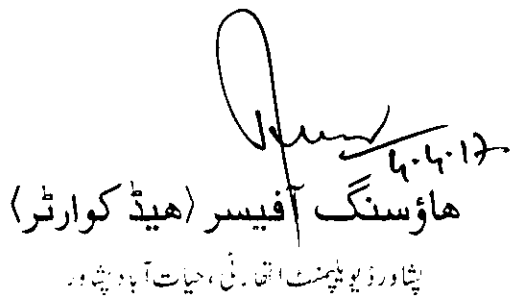 4.4.17
ھاؤسنگ آفیسر (ھیڈ کوارٹر)
پشاور ڈیویلپمنٹ اتھارٹی، حیات آباد پشاور